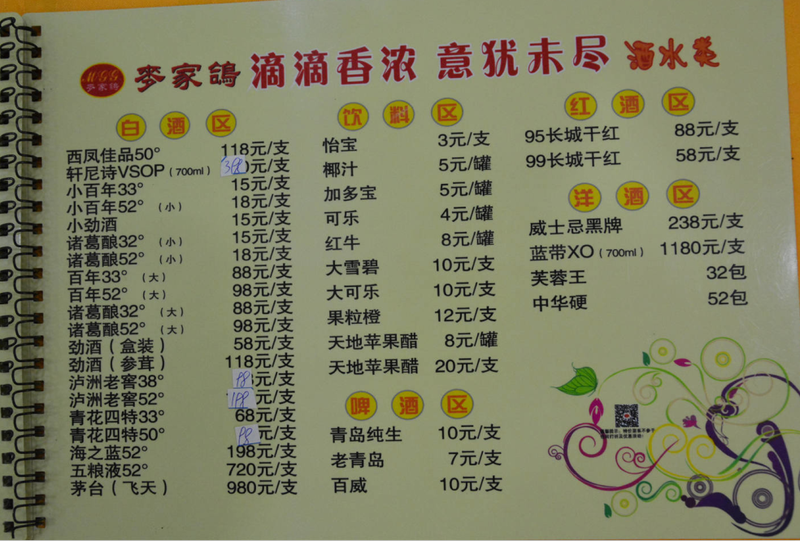 MGG
麦家鸽
麦家鸽 滴滴香浓 意犹未尽 酒水类
白酒区
西凤佳品50° 118元/支
轩尼诗VSOP（700ml） 元/支
小百年33° 15元/支
小百年52°（小） 18元/支
小劲酒 15元/支
诸葛酿32°（小） 15元/支
诸葛酿52°（小） 18元/支
百年33°（大） 88元/支
百年52°（大） 98元/支
诸葛酿32°（大） 88元/支
诸葛酿52°（大） 98元/支
劲酒（盒装） 58元/支
劲酒（参茸） 118元/支
泸洲老窖38° 元/支
泸洲老窖52° 元/支
青花四特33° 68元/支
青花四特50° 元/支
海之蓝52° 198元/支
五粮液52° 720元/支
茅台（飞天） 980元/支
饮料区
怡宝 3元/支
椰汁 5元/罐
加多宝 5元/罐
可乐 4元/罐
红牛 8元/罐
大雪碧 10元/支
大可乐 10元/支
果粒橙 12元/支
天地苹果醋 8元/罐
天地苹果醋 20元/支
啤酒区
青岛纯生 10元/支
老青岛 7元/支
百威 10元/支
红酒区
95长城干红 88元/支
99长城干红 58元/支
洋酒区
威士忌黑牌 238元/支
蓝带XO（700ml） 1180元/支
芙蓉王 32包
中华硬 52包